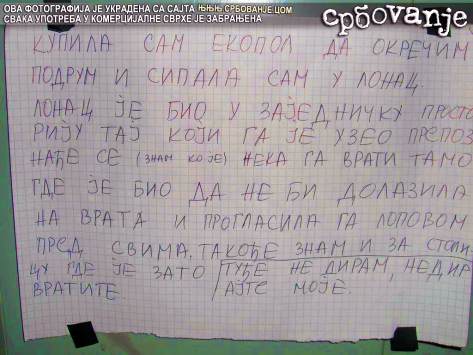 ОВА ФОТОГРАФИЈА ЈЕ УКРАДЕНА СА САЈТА ЊЊЊ СРБОВАЊЕ ЦОМ
СВАКА УПОТРЕБА У КОМЕРЦИЈАЛНЕ СВРХЕ ЈЕ ЗАБРАЊЕНА
србоvanje
КУПИЛА САМ ЕКОПОЛ ДА ОКРЕЧИМ
ПОДРУМ И СИПАЛА САМ У ЛОНАЦ.
ЛОНАЦ ЈЕ БИО У ЗАЈЕДНИЧКУ ПРОСТО
РИЈУ ТАЈ КОЈИ ГА ЈЕ УЗЕО ПРЕПОЗ
НАЂЕ СЕ (ЗНАМ КО ЈЕ) НЕКА ГА ВРАТИ ТАМО
ГДЕ ЈЕ БИО ДА НЕ БИ ДОЛАЗИЛА
НА ВРАТА И ПРОГЛАСИЛА ГА ЛОПОВОМ
ПРЕД СВИМА. ТАКОЂЕ ЗНАМ И ЗА СТОЛИ
ЦУ ГДЕ ЈЕ ЗАТО ТУЂЕ НЕ ДИРАМ, НЕ ДИР
ВРАТИТЕ АЈТЕ МОЈЕ.